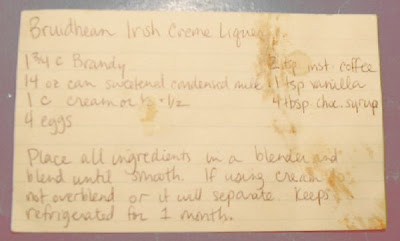 Bruidhean Irish Creme Liqueur
1 3/4 c Brandy
2 tsp inst. coffee
14 oz can sweetened condensed milk
1 tsp vanilla
1 c cream or 1/2 - 1/2
4 tbsp choc. syrup
4 eggs
Place all ingredients in a blender and
blend until smooth. If using cream do
not overblend or it will separate. Keeps
refrigerated for 1 month.